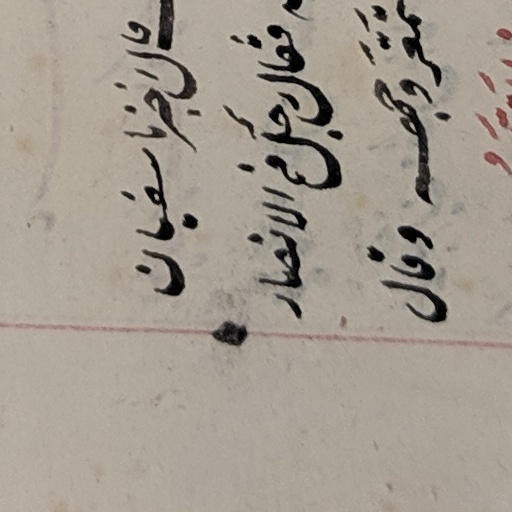 قال اخبرنا سفيان
فقال رجل من الانصار
فتمعر وجهه وقال